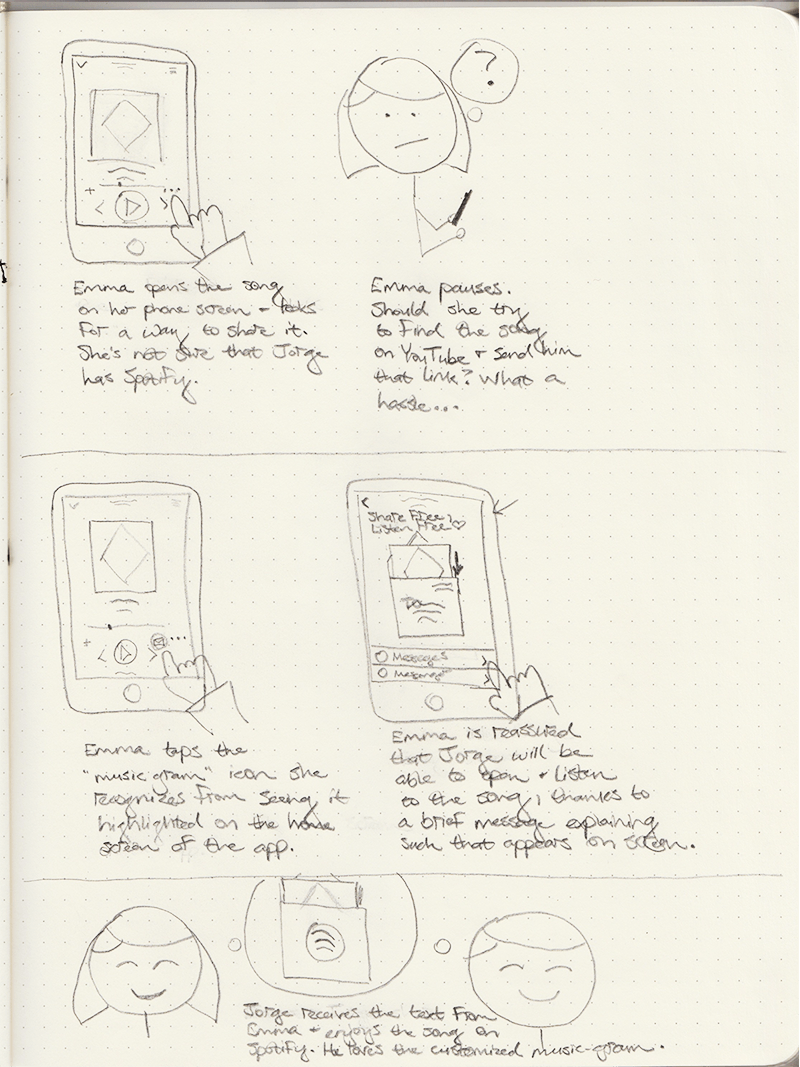 Emma opens the song
on her phone screen - looks
for a way to share it.
She's not sure that Jorge
has Spotify.
?
Emma pauses.
Should she try
to find the song
on YouTube + send him
that link? What a
hassle...
Emma taps the
"music-gram" icon she
recognizes from seeing it
highlighted on the home
screen of the app.
Share Free,
Listen Free
Messages
Emma is reassured
that Jorge will be
able to open + listen
to the song, thanks to
a brief message explaining
such that appears on screen.
Jorge receives the text from
Emma + enjoys the song on
Spotify. He loves the customized music-gram.